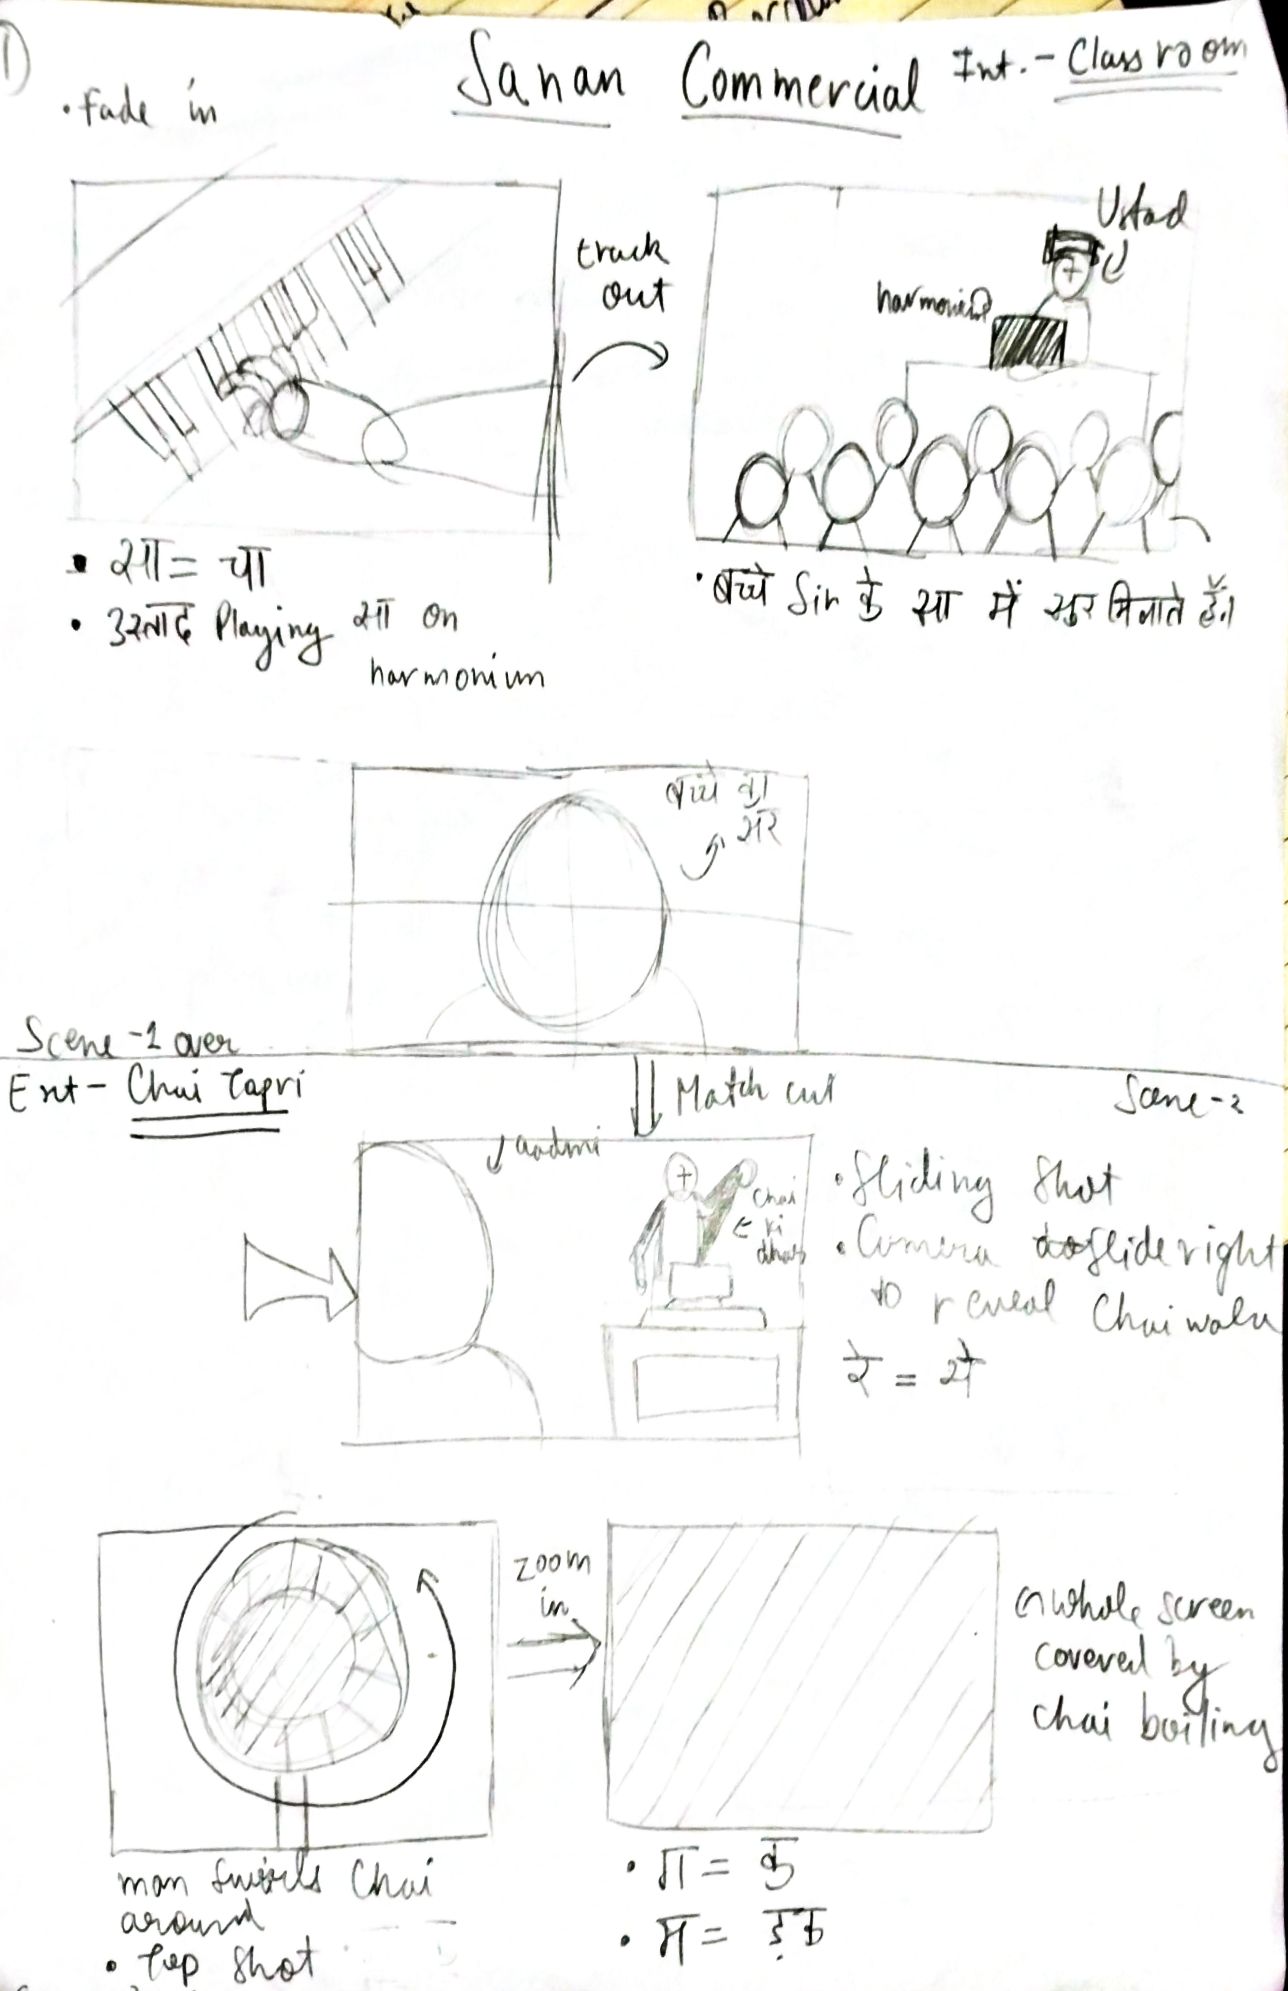 1)
Sanan Commercial
Int. - Classroom
• Fade in
track
out
Ustad
harmonium
• सा = चा
• उस्ताद Playing सा on
harmonium
• बच्चे Sir के सा में सुर मिलाते हैं।
बच्चे का
सर
Scene -1 over
Ext - Chai Tapri
Match cut
Scene-2
aadmi
chai
ki
dhar
• Sliding Shot
• Camera slide right
to reveal Chaiwala
रे = ये
zoom
in
whole screen
covered by
chai boiling
man swirls Chai
around
• Top Shot
• ग = क
• म = ड़क